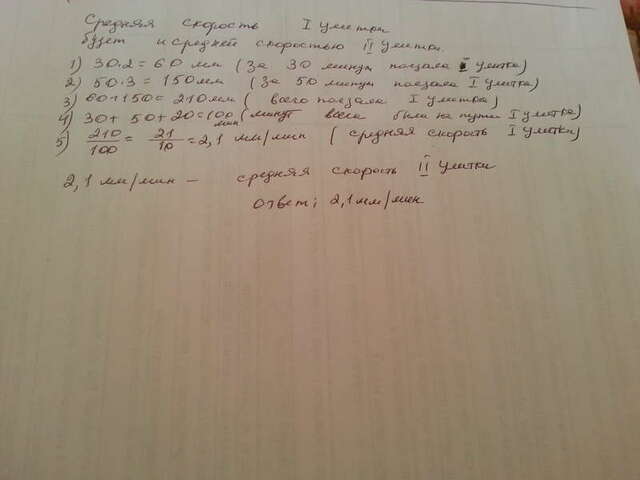 Средняя скорость I улитки
будет и средней скоростью II улитки.
1) 30·2 = 60 мм (за 30 минут поползла I улитка)
2) 50·3 = 150 мм (за 50 минут поползла I улитка)
3) 60+150 = 210 мм (всего поползла I улитка)
4) 30+50+20=100 мин (минут всего были на пути I улитка)
5) 210/100 = 21/10 = 2,1 мм/мин (средняя скорость I улитки)
2,1 мм/мин – средняя скорость II улитки
Ответ: 2,1 мм/мин